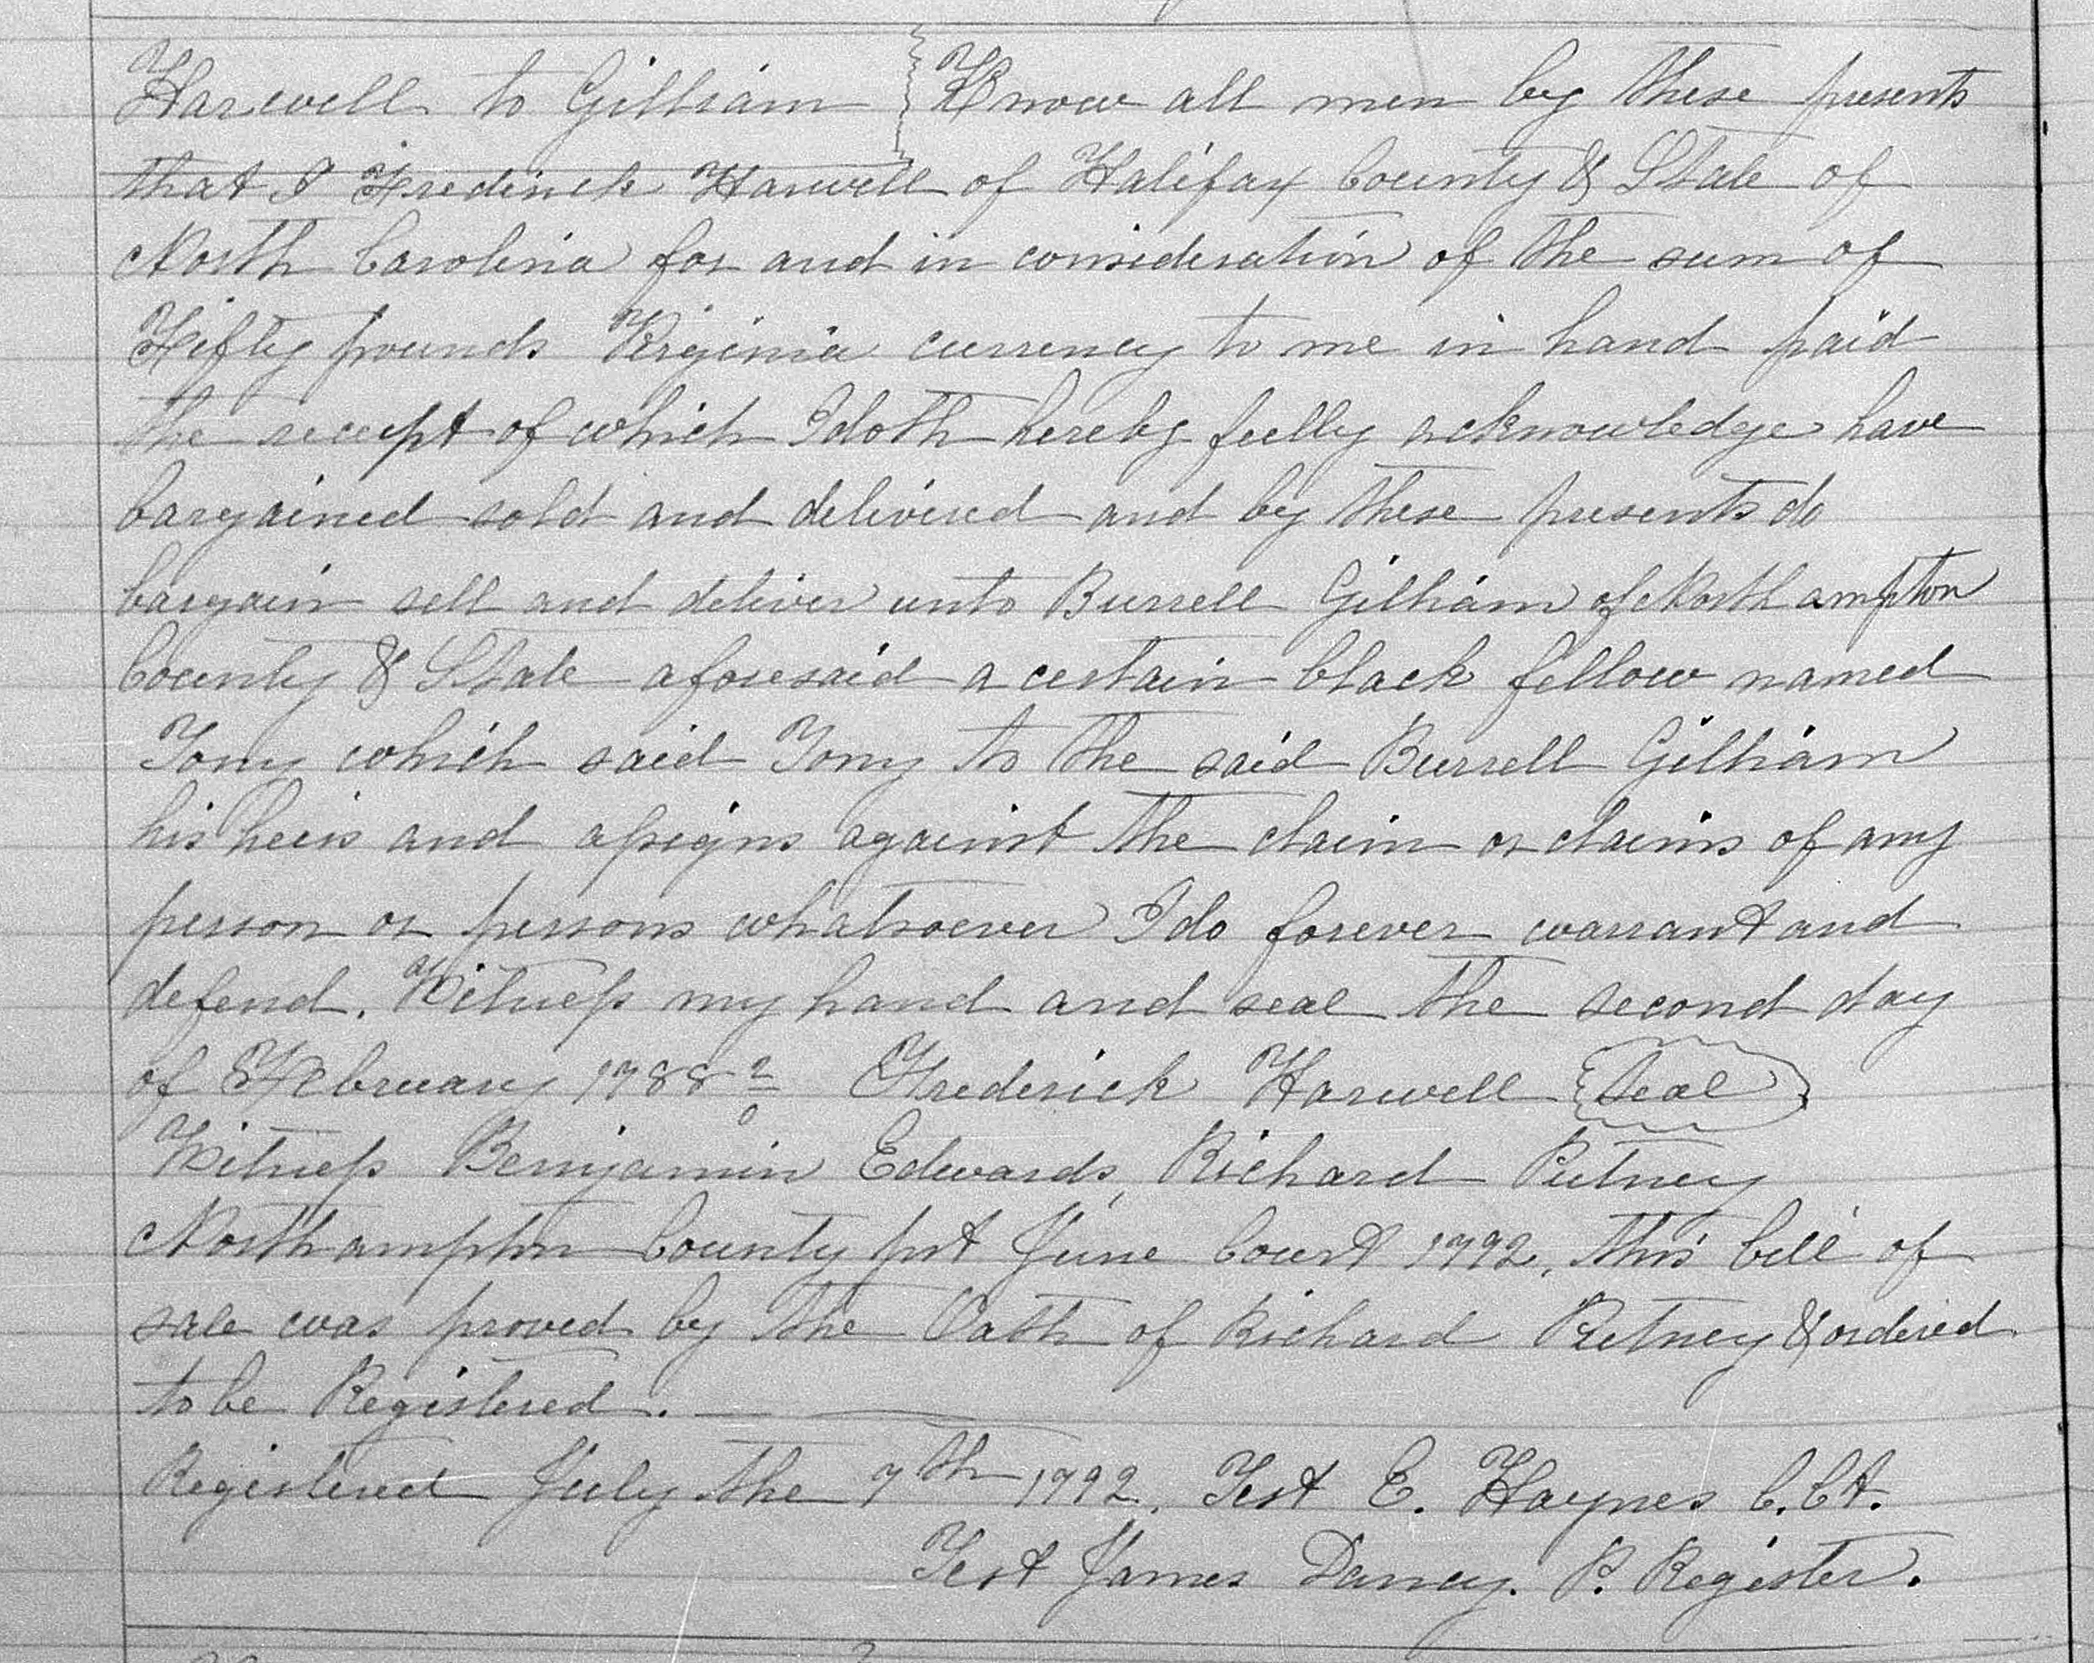 Harwell to Gilliam } Know all men by these presents
that I Fredirick Harwell of Halifax County & State of
North Carolina for and in consideration of the sum of
Fifty pounds Virginia currency to me in hand paid
the receipt of which I doth hereby fully acknowledge have
bargained sold and delivered and by these presents do
bargain sell and deliver unto Burrell Gilliam of Northampton
County & State aforesaid a certain black fellow named
Tony which said Tony to the said Burrell Gilliam
his heirs and assigns against the claim or claims of any
person or persons whatsoever I do forever warrant and
defend. Witness my hand and seal the second day
of February 1788 Frederick Harwell Seal
Witness Benjamin Edwards, Richard Putney
Northampton County pst June Court 1792, this bill of
sale was proved by the Oath of Richard Putney & ordered
to be Registered.
Registered July the 7th 1792. Test E. Haynes C.Ct.
Test James Dancy. P. Register.